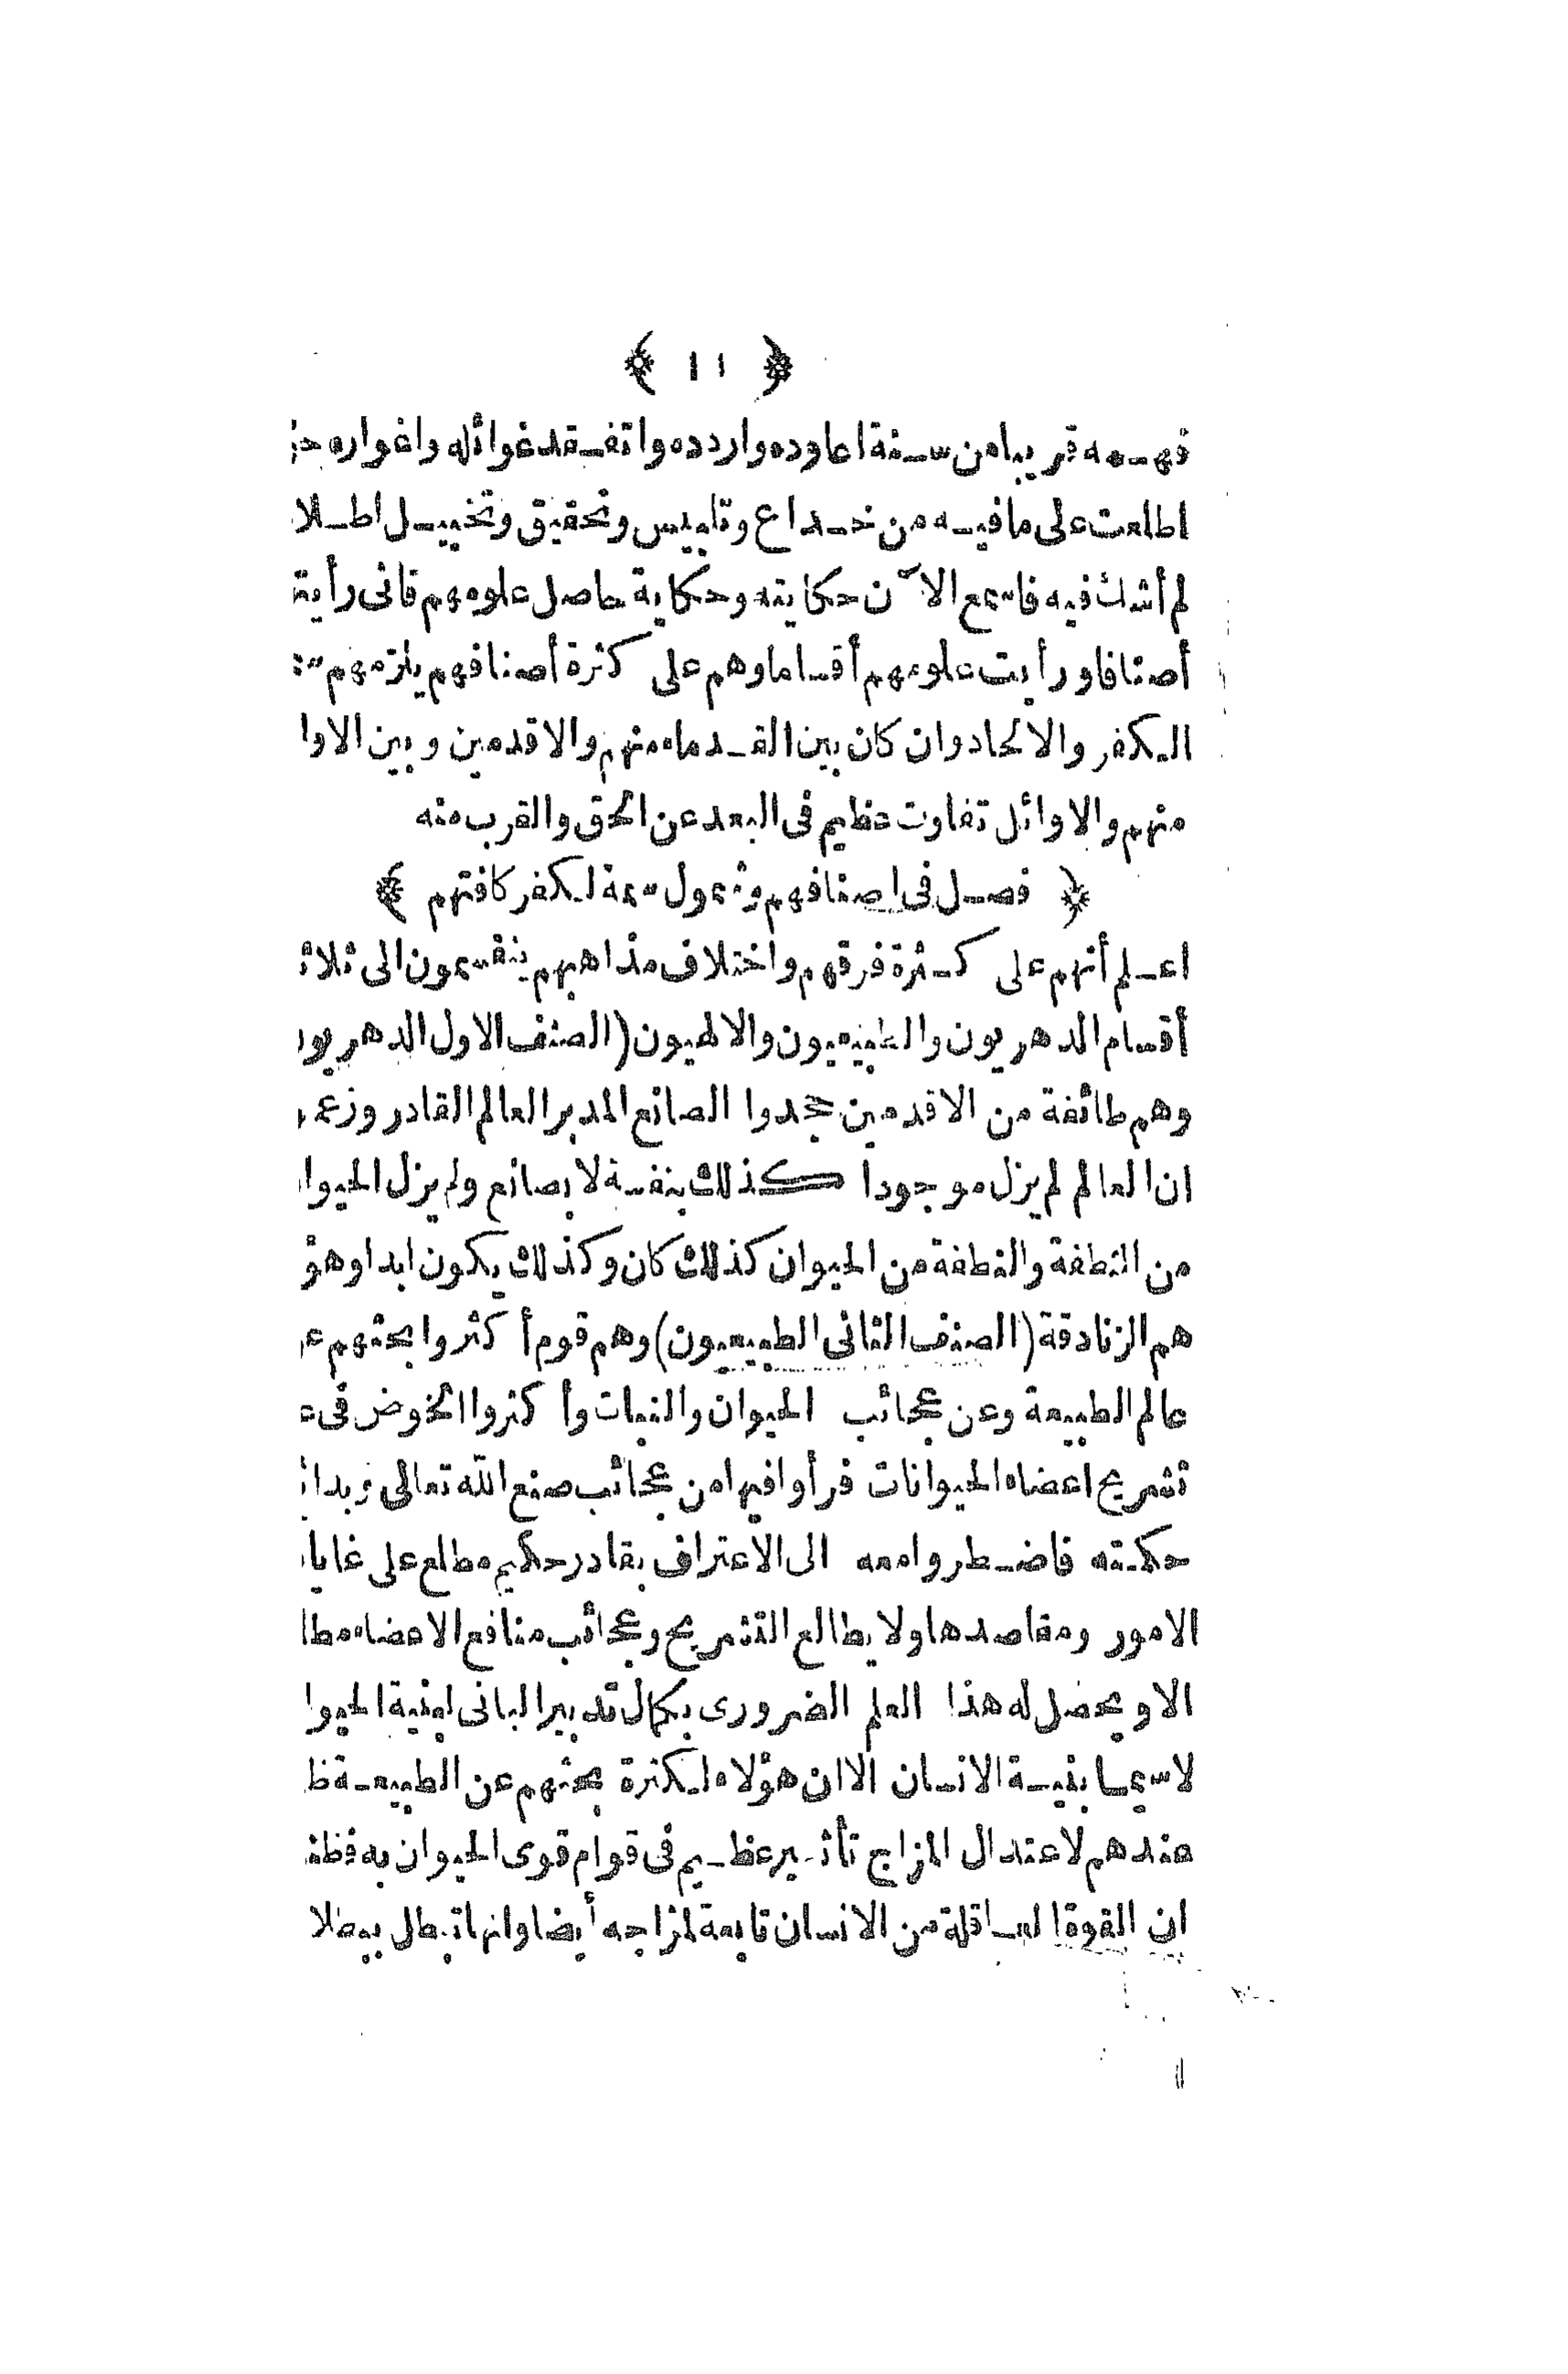 ﴿ ١١ ﴾
فهمه قريبا من سنة اعاوده واردده واتفقد غوائله واغواره
اطلعت على ما فيه من خداع وتلبيس وتحقيق وتخييل اطلا
لم أشك فيه فاسمع الآن حكايته وحكاية حاصل علومهم فانى رأيت
أصنافا ورأيت علومهم أقساما وهم على كثرة أصنافهم يلزمهم
الكفر والالحاد وان كان بين القدماء منهم والاقدمين وبين الاوا
منهم والاوائل تفاوت عظيم فى البعد عن الحق والقرب منه
﴿ فصل فى اصنافهم وشمول سمة الكفر كافتهم ﴾
اعلم أنهم على كثرة فرقهم واختلاف مذاهبهم ينقسمون الى ثلاث
أقسام الدهريون والطبيعيون والالهيون (الصنف الاول الدهريون
وهم طائفة من الاقدمين جحدوا الصانع المدبر العالم القادر وزعم
ان العالم لم يزل موجودا كذلك بنفسه لا بصانع ولم يزل الحيوا
من النطفة والنطفة من الحيوان كذلك كان وكذلك يكون ابدا وهؤ
هم الزنادقة (الصنف الثانى الطبيعيون) وهم قوم أكثروا بحثهم ع
عالم الطبيعة وعن عجائب الحيوان والنبات وأكثروا الخوض فى ع
تشريح اعضاء الحيوانات فرأوا فيها من عجائب صنع الله تعالى وبدا
حكمته فاضطروا معه الى الاعتراف بقادر حكيم مطلع على غايا
الامور ومقاصدها ولا يطالع التشريح وعجائب منافع الاعضاء مطا
الا ويحصل له هذا العلم الضرورى بكمال تدبير البانى لبنية الحيوا
لا سيما بنية الانسان الا ان هؤلاء لكثرة بحثهم عن الطبيعة ظ
عندهم لاعتدال المزاج تأثير عظيم فى قوام قوى الحيوان به فظن
ان القوة العاقلة من الانسان تابعة لمزاجه أيضا وانها تبطل ببطلا